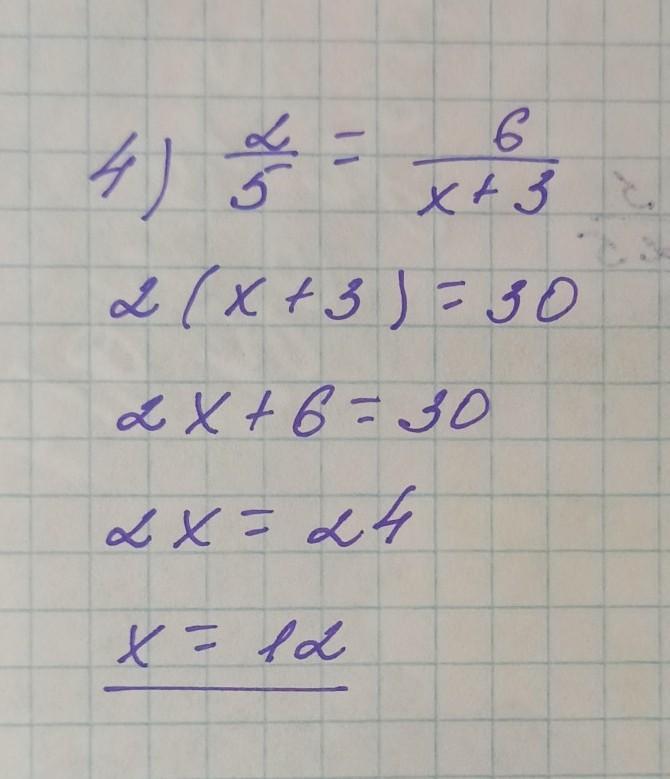 4) 2/5 = 6/(x+3)
2(x+3)=30
2x+6=30
2x=24
x=12